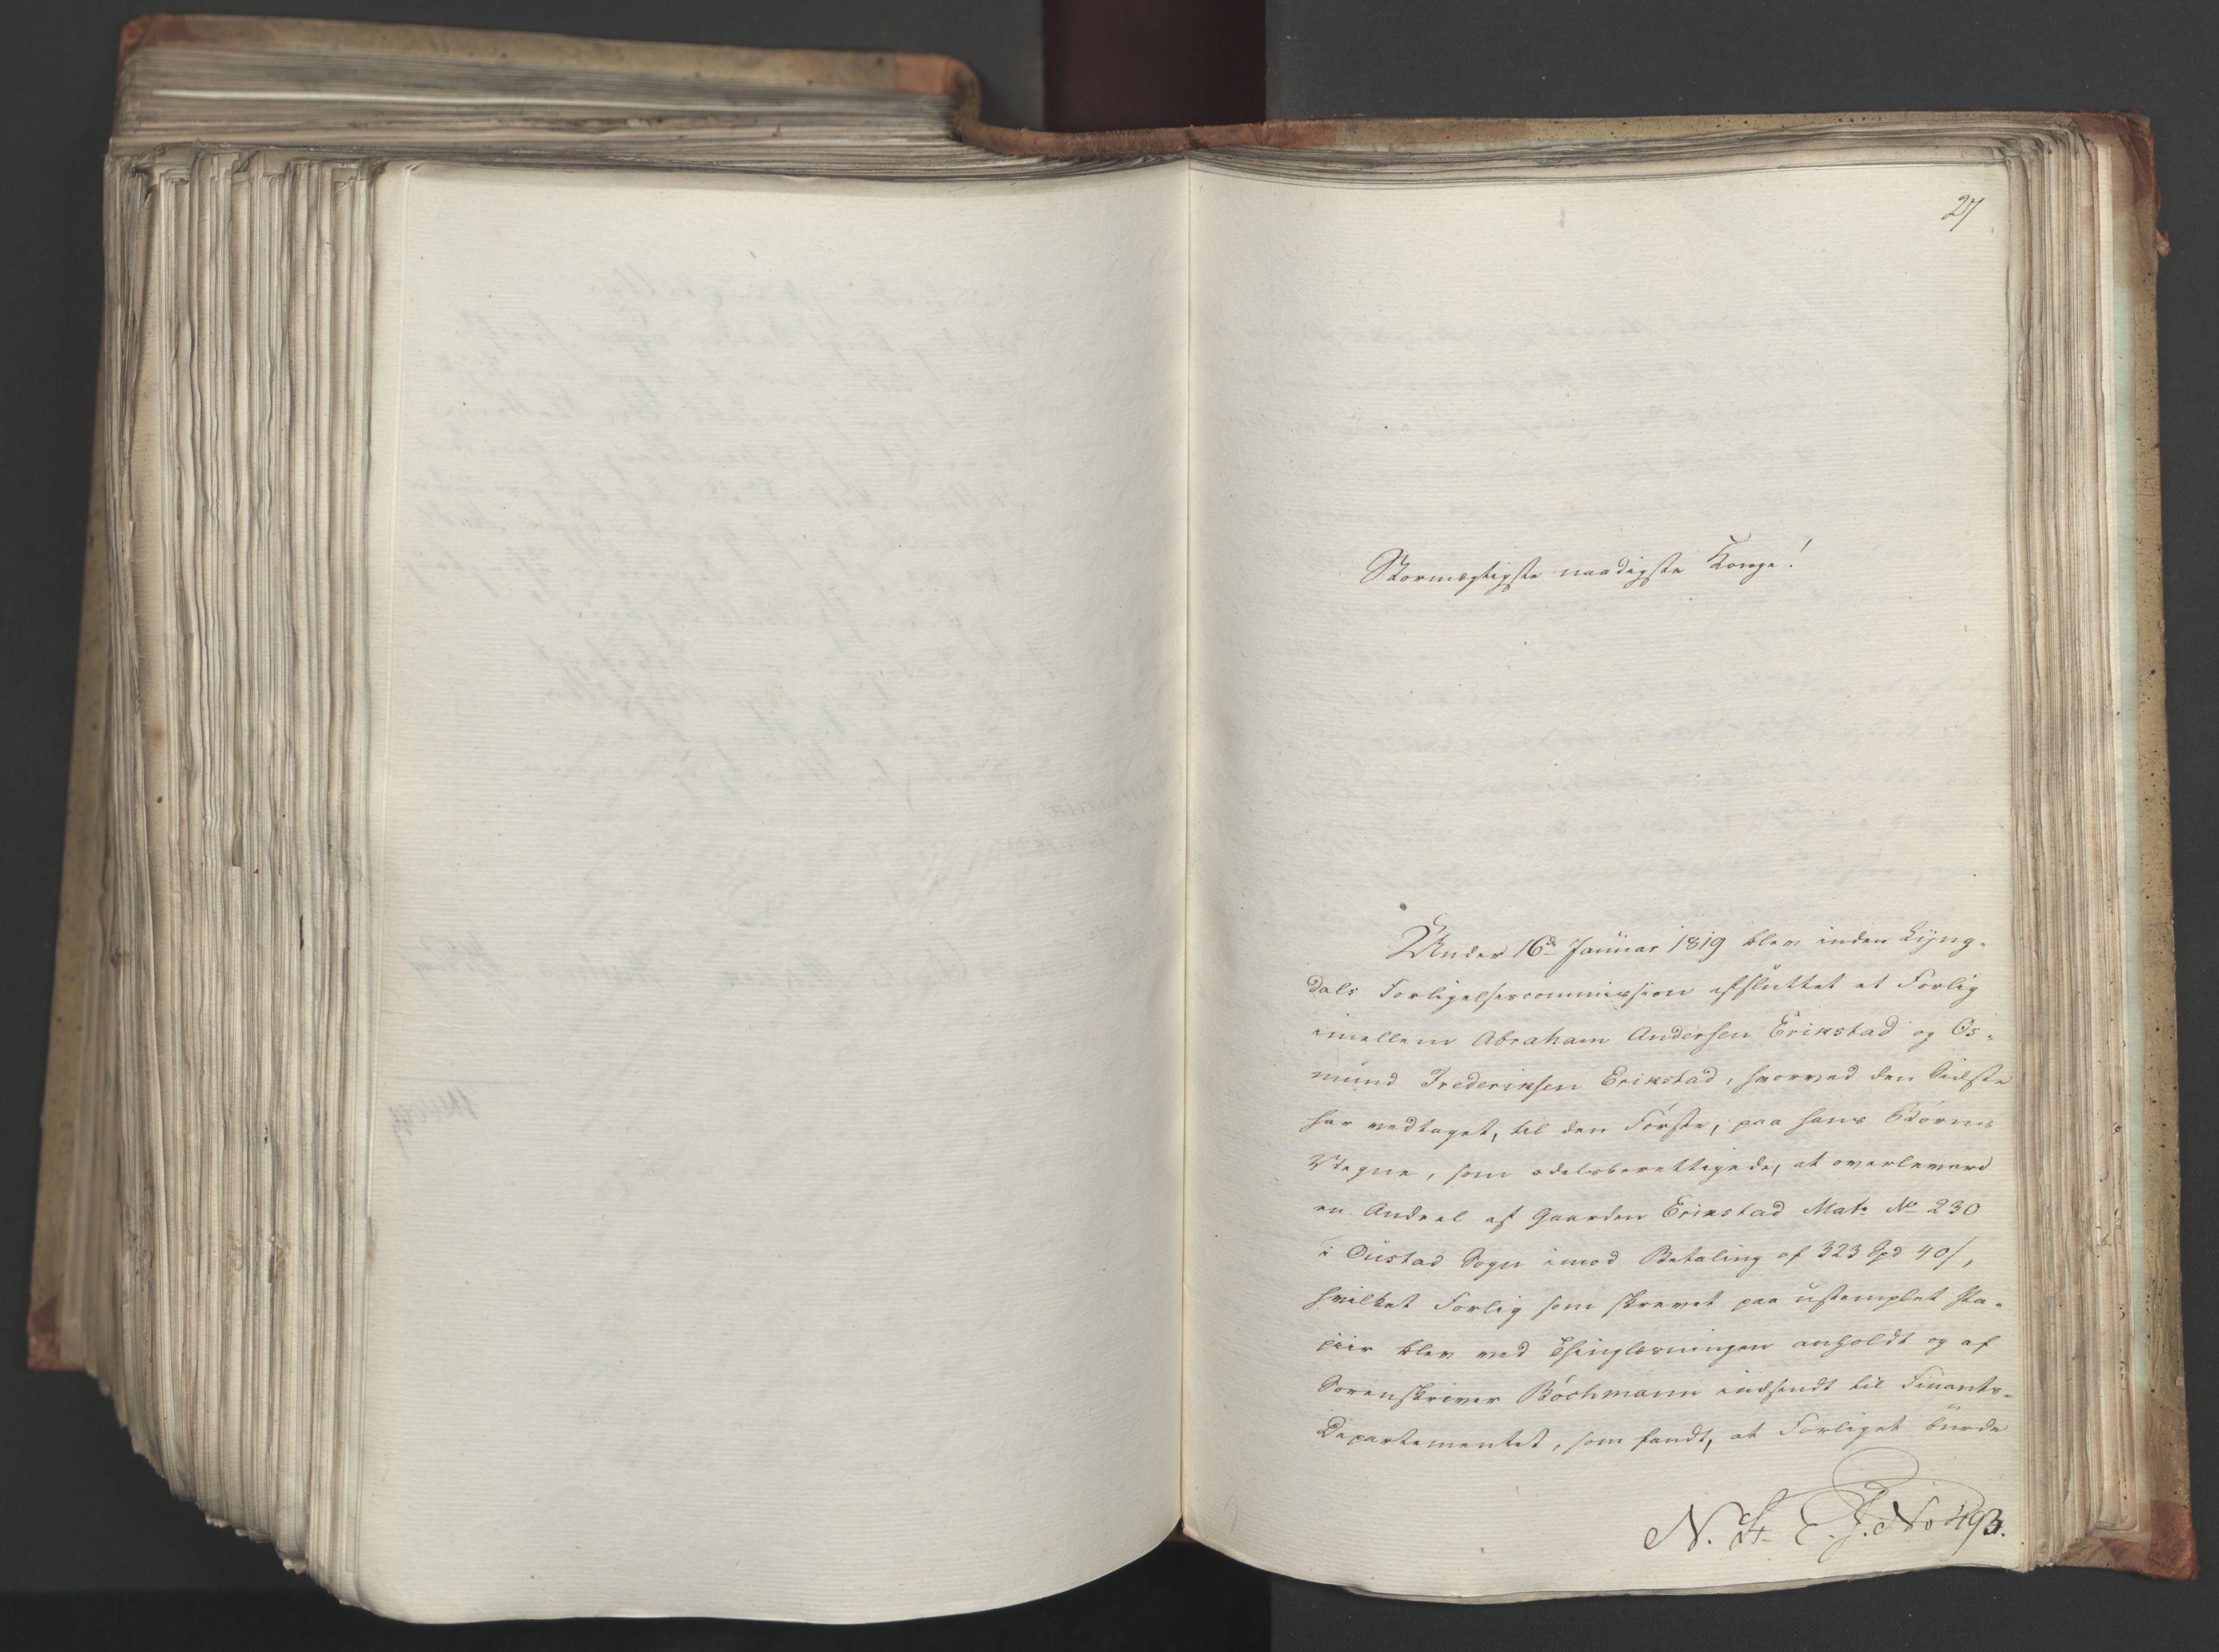 27
Stormægtigste naadigste Konge!
Under 16de Januar 1819 blev inden Lyng-
dals Forligelsescommission afsluttet et Forlig
imellem Abraham Andersen Erikstad og Os-
mund Frederiksen Erikstad, hvorved den Sidste
har vedtaget, til den Første, paa hans Børns
Vegne, som odelsberettigede, at overlevere
en Andeel af Gaarden Erikstad Mat: No 230
i Qustad Sogn imod Betaling af 323 Spd 40 s,
hvilket Forlig som skrevet paa ustemplet Pa-
piir blev ved Thinglæsningen anholdt og af
Sorenskriver Bochmann indsendt til Finants-
Departementet, som fandt, at Forliget burde
N. F. E. J. No 493.